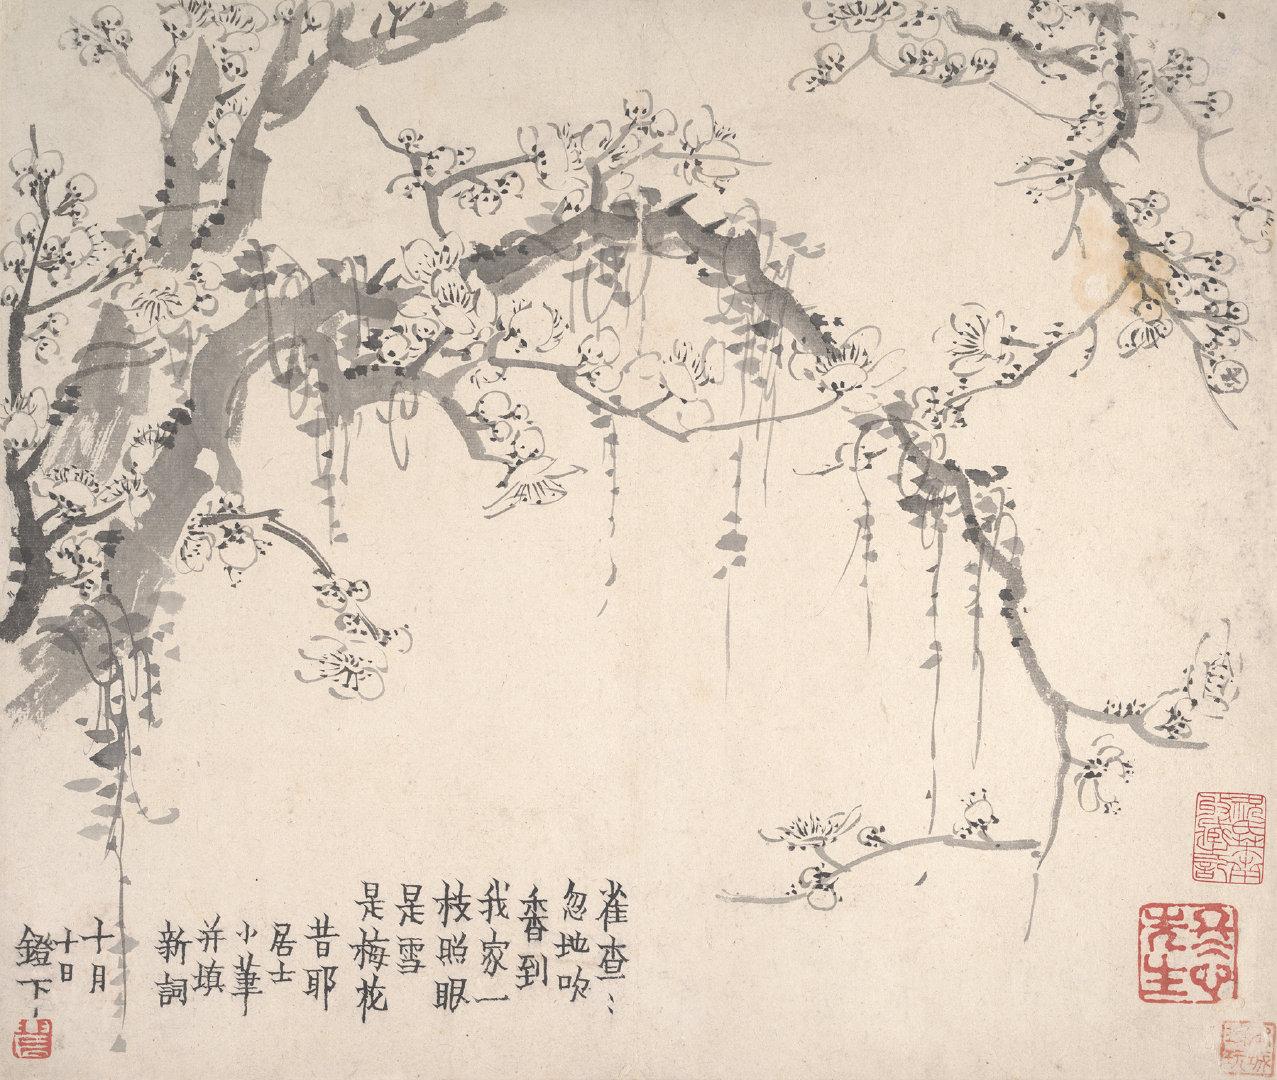 雀查：
忽地吹
香到
我家一
枝照眼
是雪
是梅花
昔耶
居士
小筆
并填
新詞
十月
十日
鐙下
先生